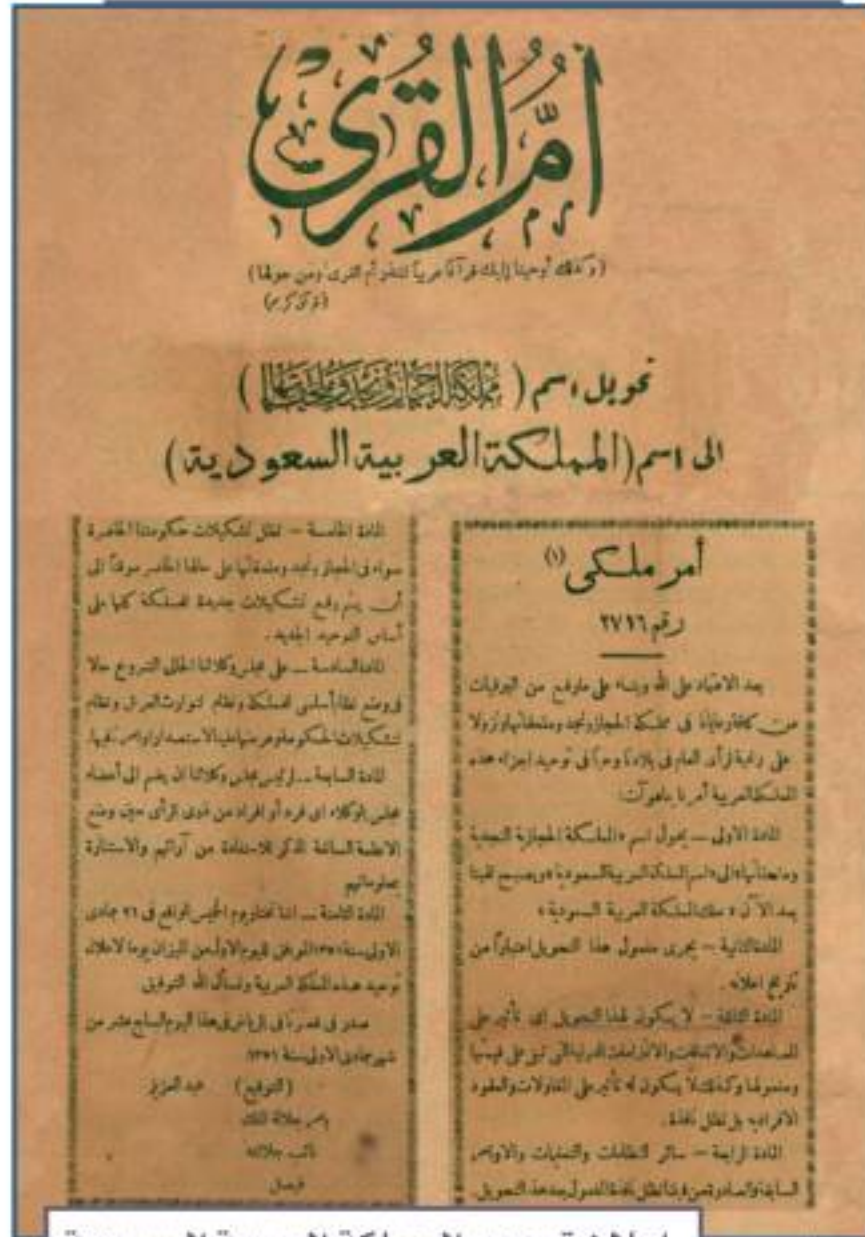 أم القرى
(وكذلك أوحينا إليك قرآنا عربياً لتنذر أم القرى ومن حولها)
(قرآن كريم)
تحويل اسم (مملكة الحجاز ونجد وملحقاتها)
الى اسم (المملكة العربية السعودية)
أمر ملكي (١)
رقم ٢٧١٦
بعد الاعتماد على الله وبناء على ما رفع من البرقيات
من كافة رعايانا في مملكة الحجاز ونجد وملحقاتها ونزولا
على رغبة الرأى العام في بلادنا وحباً في توحيد اجزاء هذه
المملكة العربية أمرنا بما هو آت:
المادة الاولى – يحول اسم «المملكة الحجازية النجدية
وملحقاتها» الى «اسم المملكة العربية السعودية» ويصبح لقبنا
بعد الآن «ملك المملكة العربية السعودية»
المادة الثانية – يجرى مفعول هذا التحويل اعتباراً من
تاريخ اعلانه.
المادة الثالثة – لا يكون لهذا التحويل اى تأثير على
المعاهدات والاتفاقات والالتزامات الدولية التى تبقى على قيمتها
ومفعولها وكذلك لا يكون له تأثير على المقاولات والعقود
الافرادية بل تظل نافذة.
المادة الرابعة – سائر النظامات والتعليمات والاوامر
السابقة والصادرة من قبلنا تظل نافذة المفعول بعد هذا التحويل.
المادة الخامسة – تظل تشكيلات حكومتنا الحاضرة
سواء في الحجاز ونجد وملحقاتها على حالها الحاضر موقتاً الى
أن يتم وضع تشكيلات جديدة للمملكة كلها على
أساس التوحيد الجديد.
المادة السادسة – على مجلس وكلائنا الحالى الشروع حالا
في وضع نظام أساسى للمملكة ونظام لتوارث العرش ونظام
لتشكيلات الحكومة وعرضها علينا لاستصدار اوامرنا فيها.
المادة السابعة – لرئيس مجلس وكلائنا ان يضم الى أعضاء
مجلس الوكلاء اى فرد أو افراد من ذوى الرأى حين وضع
الانظمة السالفة الذكر للاستفادة من آرائهم والاستنارة
بمعلوماتهم
المادة الثامنة – اننا نختار يوم الخميس الواقع في ٢١ جمادى
الاولى سنة ١٣٥١ الموافق لليوم الاول من الميزان يوما لاعلان
توحيد هذه المملكة العربية ونسأل الله التوفيق
صدر في قصرنا في الرياض في هذا اليوم السابع عشر من
شهر جمادى الاولى سنة ١٣٥١
(التوقيع) عبد العزيز
بامر جلالة الملك
نائب جلالته
فيصل